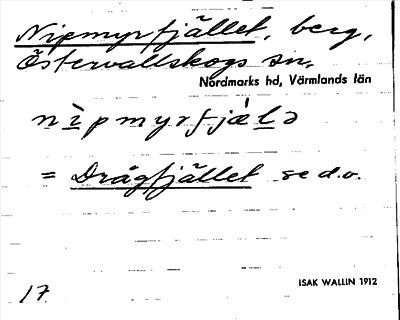 Nipmyrfjället, berg,
Östervallskogs sn,
Nordmarks hd, Värmlands län
nìpmyrfjæ̀lə
= Drågfjället se d.o.
17
ISAK WALLIN 1912